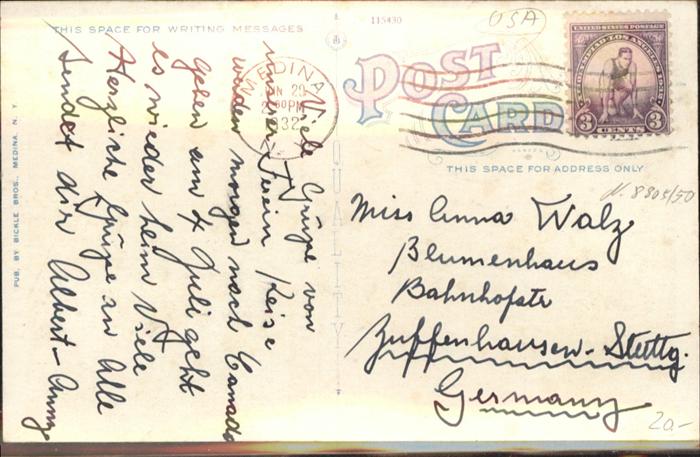 THIS SPACE FOR WRITING MESSAGES
115430
USA
UNITED STATES POSTAGE
3 CENTS 3
MEDINA
29
PM
32
POST
CARD
THIS SPACE FOR ADDRESS ONLY
QUALITY
PUB. BY BICKLE BROS., MEDINA, N. Y.
Viele Grüße von
unserer Ferien Reise
werden morgen nach Canada
gehen am 4 Juli geht
es wieder heim Viele
Herzliche Grüße an Alle
sendet dir Albert - Anny
N. 8805/50
Miss Anna Walz
Blumenhaus
Bahnhofstr
Zuffenhausen - Stuttg.
Germany
20-